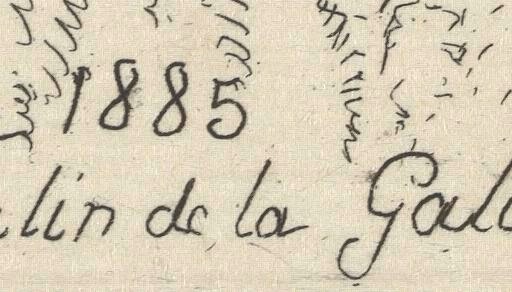 1885
lin de la Gal